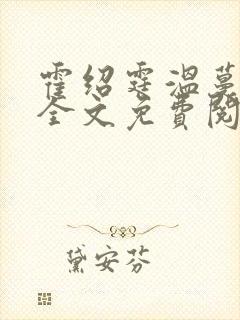 霍绍霆温蔓
全文免费阅
黛安芬